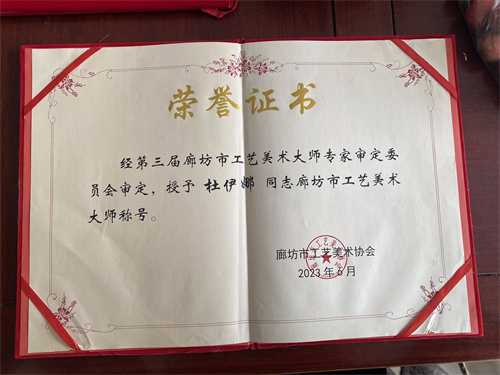 荣誉证书
经第三届廊坊市工艺美术大师专家审定委
员会审定，授予 杜伊娜 同志廊坊市工艺美术
大师称号。
廊坊市工艺美术协会
2023年6月